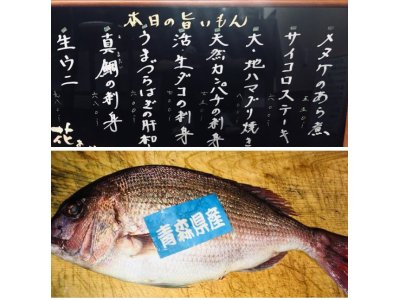 本日の旨いもん
メヌケのあら煮
サイコロステーキ
大・地ハマグリ焼き
天然カンパチの刺身
活・生ダコの刺身
うまづらはぎの肝和
真鯛の刺身
生ウニ
花
青森県産